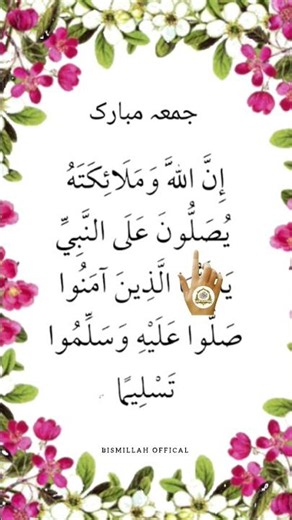 جمعہ مبارک
إِنَّ اللَّهَ وَمَلَائِكَتَهُ
يُصَلُّونَ عَلَى النَّبِيِّ
الَّذِينَ آمَنُوا
صَلُّوا عَلَيْهِ وَسَلِّمُوا
تَسْلِيمًا
BISMILLAH OFFICAL